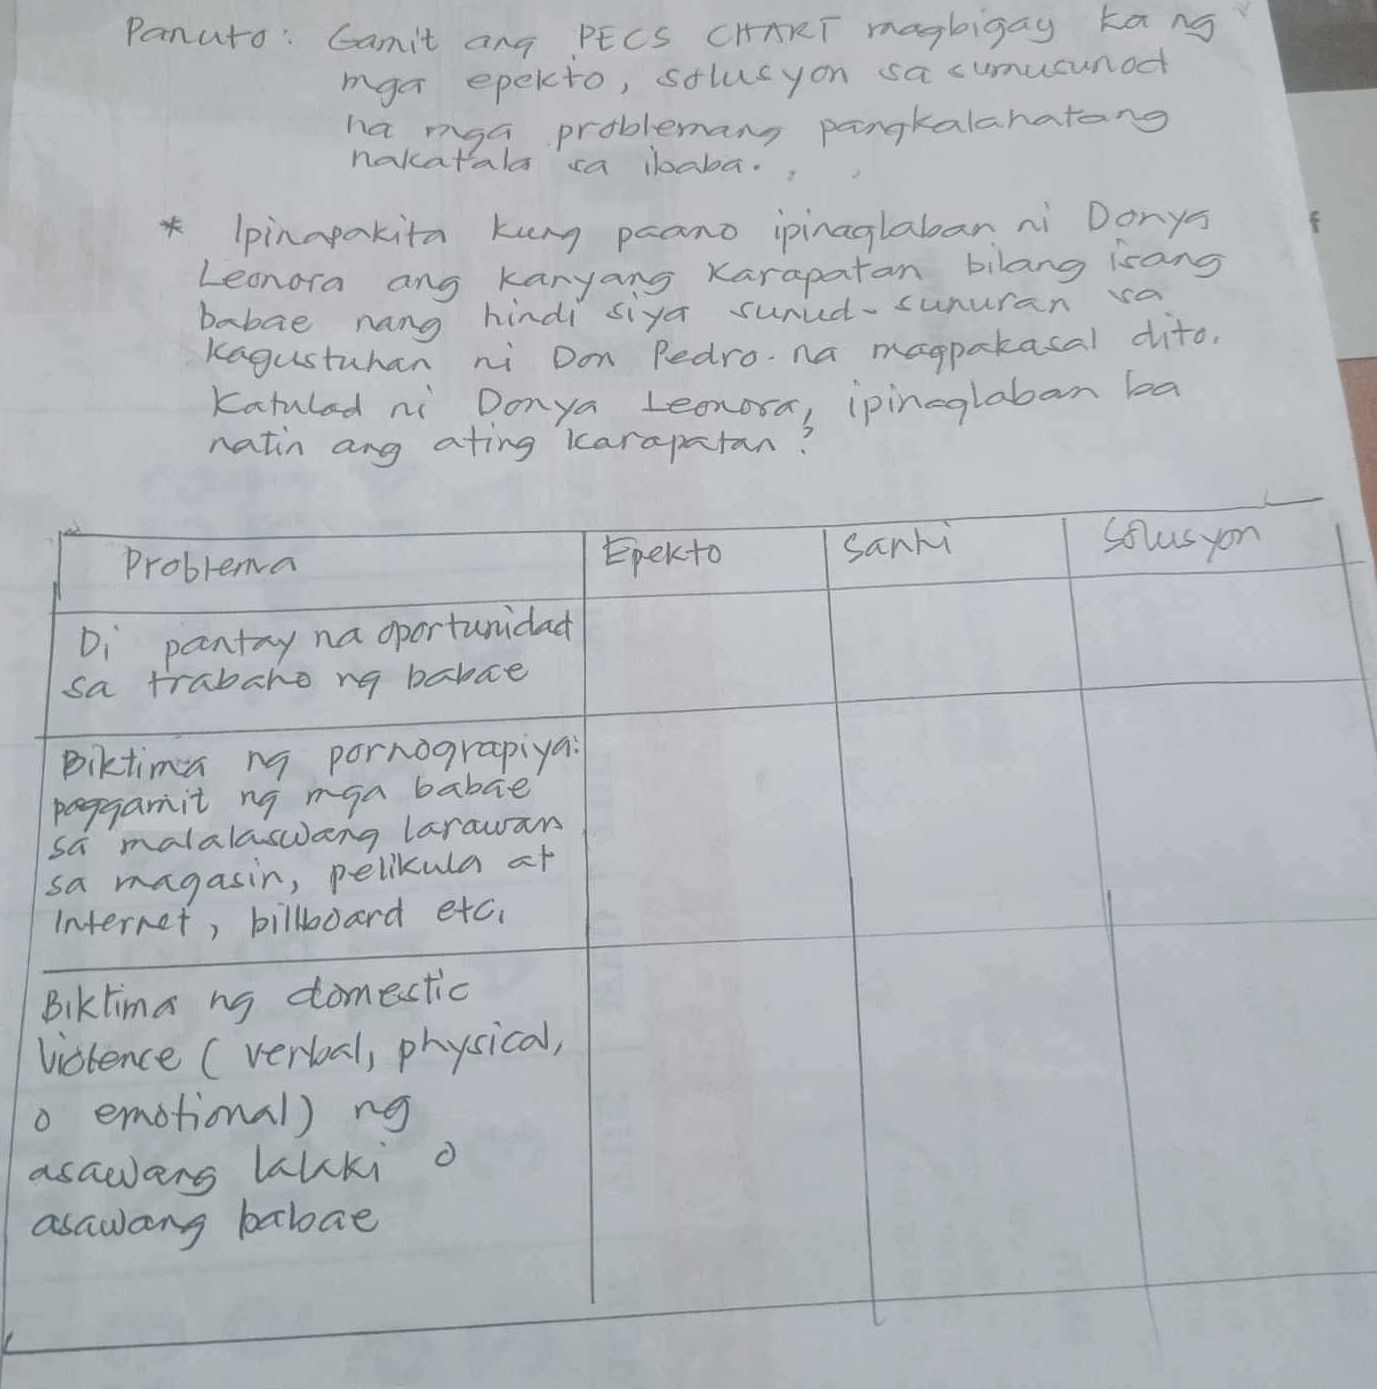 Panuto: Gamit ang PECS CHART magbigay ka ng
mga epekto, solusyon sa sumusunod
na mga problemang pangkalahatang
nakatala sa ibaba.
* Ipinapakita kung paano ipinaglaban ni Donya
Leonora ang kanyang karapatan bilang isang
babae nang hindi siya sunud-sunuran sa
kagustuhan ni Don Pedro na magpakasal dito.
Katulad ni Donya Leonora, ipinaglaban ba
natin ang ating karapatan?
Problema Epekto Sanhi Solusyon
Di pantay na oportunidad
sa trabaho ng babae
Biktima ng pornograpiya:
paggamit ng mga babae
sa malalaswang larawan
sa magasin, pelikula at
Internet, billboard etc.
Biktima ng domestic
Violence (verbal, physical,
o emotional) ng
asawang lalaki o
asawang babae